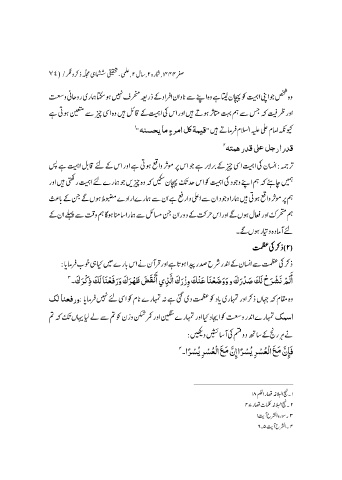 صفر ۱۴۴۴، شمارہ ۲، سال ۲، علمی، تحقیقی ششماہی مجلہ ذکر و فکر / (۷۴
وہ شخص جو اپنی اہمیت کو پہچان لیتا ہے وہ اپنے سے نادان افراد کے ذریعہ منحرف نہیں ہو سکتا ہماری روحانی وسعت
اور ظرفیت کہ جس سے ہم بہت متاثر ہوتے ہیں اور اس کی اہمیت کے قائل ہیں وہ اسی چیز سے متعین ہوتی ہے
کیونکہ امام علی علیہ السلام فرماتے ہیں "قیمة کل امرءٍ ما یحسنه"۱
قدر ارجل علی قدر همته۲
ترجمہ: انسان کی اہمیت اسی چیز کے برابر ہے جو اس پر موثر واقع ہوتی ہے اور اس کے لئے قابل اہمیت ہے پس
ہمیں چاہئے کہ ہم اپنے وجود کی اہمیت کو اس حد تک پہچان سکیں کہ وہ چیزیں جو ہمارے لئے اہمیت رکھتی ہیں اور
ہم پر موثر واقع ہوتی ہیں ہمارا وجود ان سے اعلی و ارفع ہے ان سے ہمارے ارادے مضبوط ہوں گے جن کے باعث
ہم متحرک اور فعال ہوں گے اور اس حرکت کے دوران جن مسائل سے ہمارا سامنا ہوگا ہم وقت سے پہلے ان کے
لئے آمادہ و تیار ہوں گے۔
(۲) ذکر کی عظمت
ذکر کی عظمت سے انسان کے اندر شرح صدر پیدا ہوتا ہے اور قرآن نے اس بارے میں کیا ہی خوب فرمایا:
أَلَمْ نَشْرَحْ لَكَ صَدْرَكَ وَ وَوَضَعْنَا عَنْكَ وِزْرَكَ الَّذِي أَنْقَضَ ظَهْرَكَ وَرَفَعْنَا لَكَ ذِكْرَكَ۔۳
وہ مقام کہ جہاں ذکر اور تمہاری یاد کو عظمت دی گئی ہے نہ تمہارے نام کو اسی لئے نہیں فرمایا: ورفعنا لک
اسمک تمہارے اندر وسعت کو ایجاد کیا اور تمہارے سنگین اور کمر شکن وزن کو تم سے لے لیا یہاں تک کہ تم
نے ہر رنج کے ساتھ دو قسم کی آسائشیں دیکھیں:
فَإِنَّ مَعَ الْعُسْرِ يُسْرًا إِنَّ مَعَ الْعُسْرِ يُسْرًا۔۴
۱۔ نہج البلاغہ قصار الحکم ۸۱
۲۔ نہج البلاغہ کلمات قصار ۴۷
۳۔ سورہ الشرح آیت ۱
۴۔ الشرح آیت ۵،۶